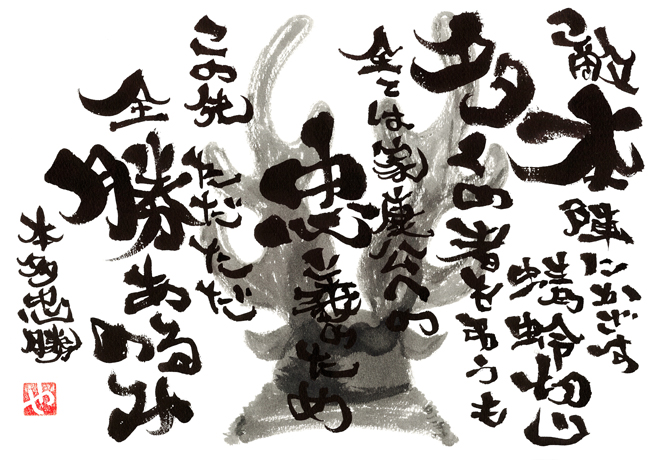 敵
本陣にかざす
蜻蛉切
多くの者を
全ては家康公への
忠と義のため
この先
ただただ
全勝あるのみ
本多忠勝
や